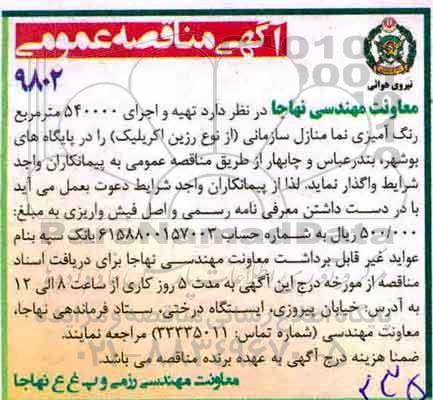 آگهی مناقصه عمومی
نیروی هوائی
۹۸۰۲
معاونت مهندسی نهاجا در نظر دارد تهیه و اجرای ۵۴۰۰۰۰ مترمربع
رنگ آمیزی نما منازل سازمانی (از نوع رزین اکریلیک) را در پایگاه های
بوشهر، بندرعباس و چابهار از طریق مناقصه عمومی به پیمانکاران واجد
شرایط واگذار نماید. لذا از پیمانکاران واجد شرایط دعوت بعمل می آید
با در دست داشتن معرفی نامه رسمی و اصل فیش واریزی به مبلغ:
۵۰۰/۰۰۰ ریال به شماره حساب ۶۱۵۸۸۰۰۱۵۷۰۰۳ بانک سپه بنام
عواید غیر قابل برداشت معاونت مهندسی نهاجا برای دریافت اسناد
مناقصه از مورخه درج این آگهی به مدت ۵ روز کاری از ساعت ۸ الی ۱۲
به آدرس: خیابان پیروزی، ایستگاه درختی، ستاد فرماندهی نهاجا،
معاونت مهندسی (شماره تماس: ۳۳۳۳۵۰۱۱) مراجعه نمایند.
ضمنا هزینه درج آگهی به عهده برنده مناقصه می باشد.
معاونت مهندسی رزمی و پ غ ع نهاجا